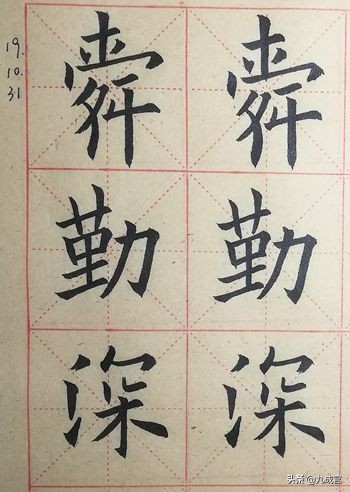 19.
10.
31
舜 舜
勤 勤
深 深
头条 @九成宫